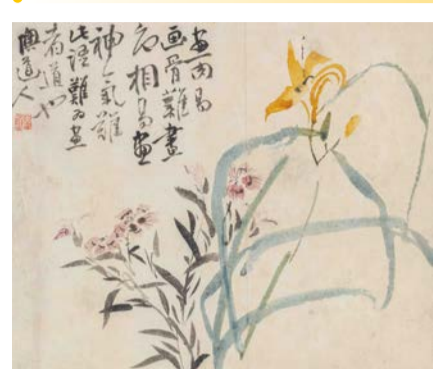 画肉易
画骨難畫
色相易畫
神氣難
此語難为畫
者道也
道人